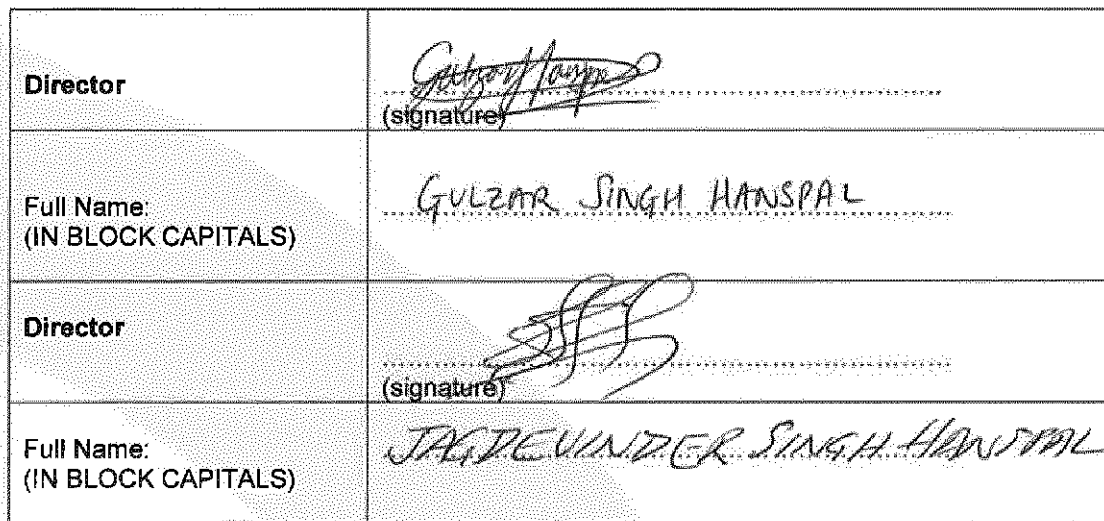 Director
Gulzar Hanspal
(signature)
Full Name:
(IN BLOCK CAPITALS)
GULZAR SINGH HANSPAL
Director
(signature)
Full Name:
(IN BLOCK CAPITALS)
JAGDEVINDER SINGH HANSPAL